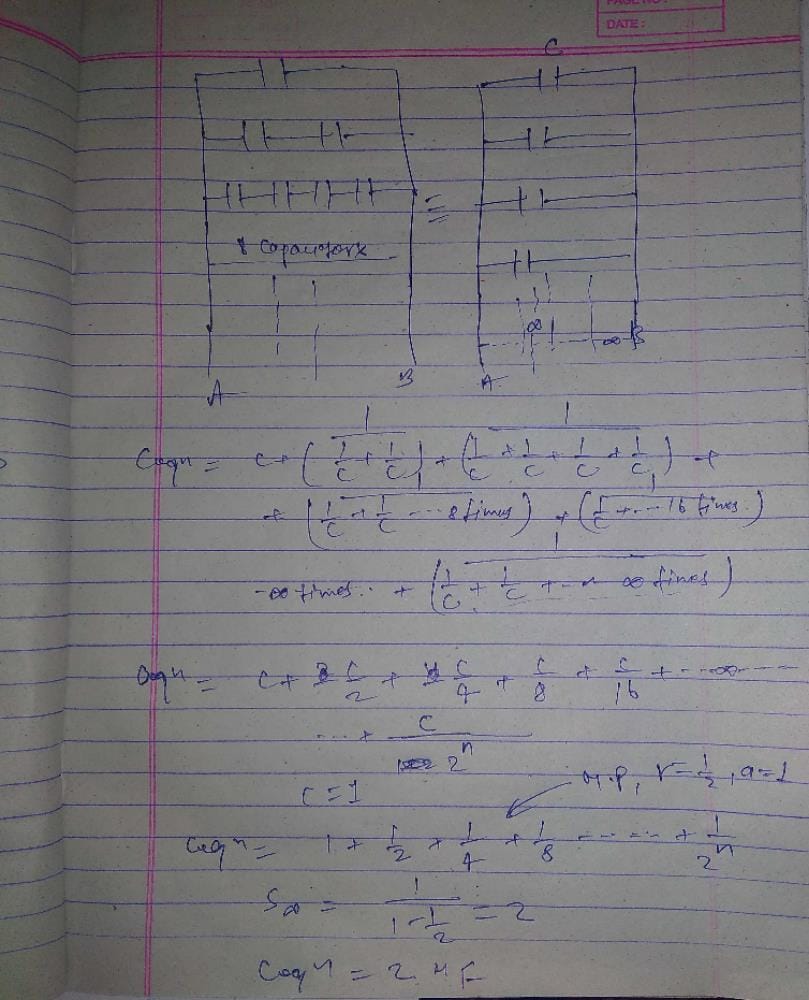 PAGE NO :
DATE :
C
≡
8 capacitors
∞ ∞ B
A B A
Ceqⁿ = C + (1/(1/C + 1/C)) + (1/(1/C + 1/C + 1/C + 1/C)) +
+ (1/(1/C + 1/C ... 8 times)) + (1/(1/C + ... 16 times))
-∞ times .. + (1/(1/C + 1/C + - - ∞ times))
Ceqⁿ = C + C/2 + C/4 + C/8 + C/16 + ---∞---
... + C/2ⁿ
C = 1
r = 1/2, a = 1
Ceqⁿ = 1 + 1/2 + 1/4 + 1/8 ------ + 1/2ⁿ
S∞ = 1/(1 - 1/2) = 2
Ceqⁿ = 2 μF